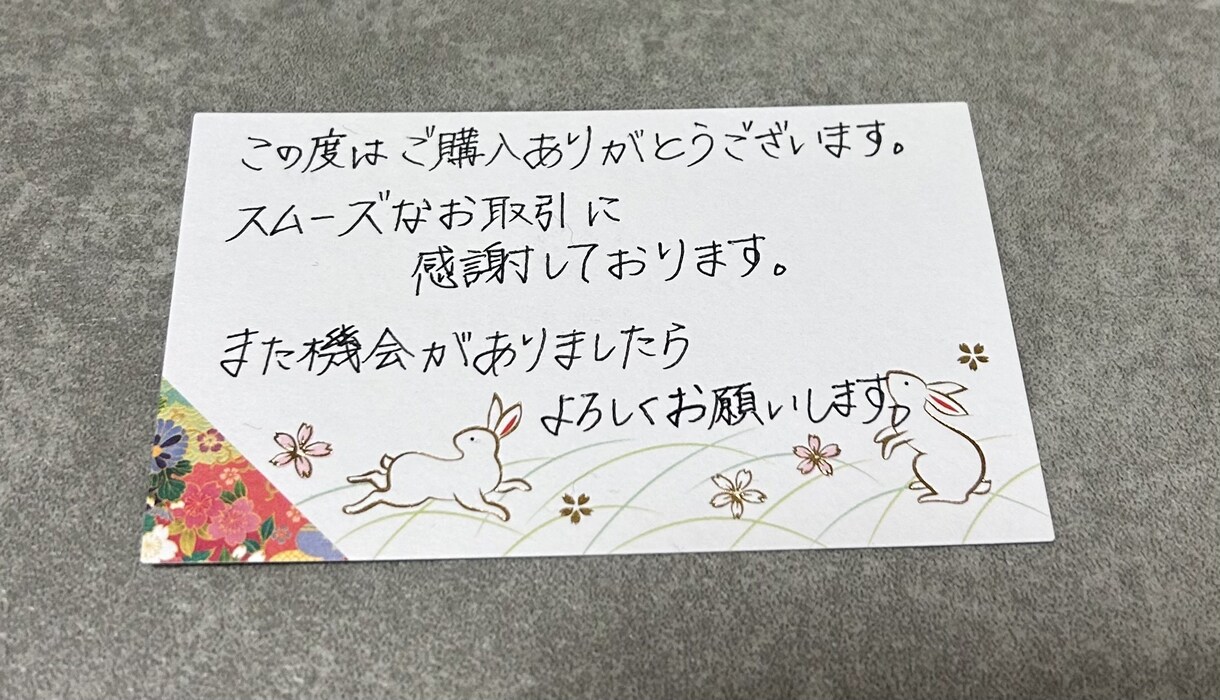 この度はご購入ありがとうございます。
スムーズなお取引に
感謝しております。
また機会がありましたら
よろしくお願いします。